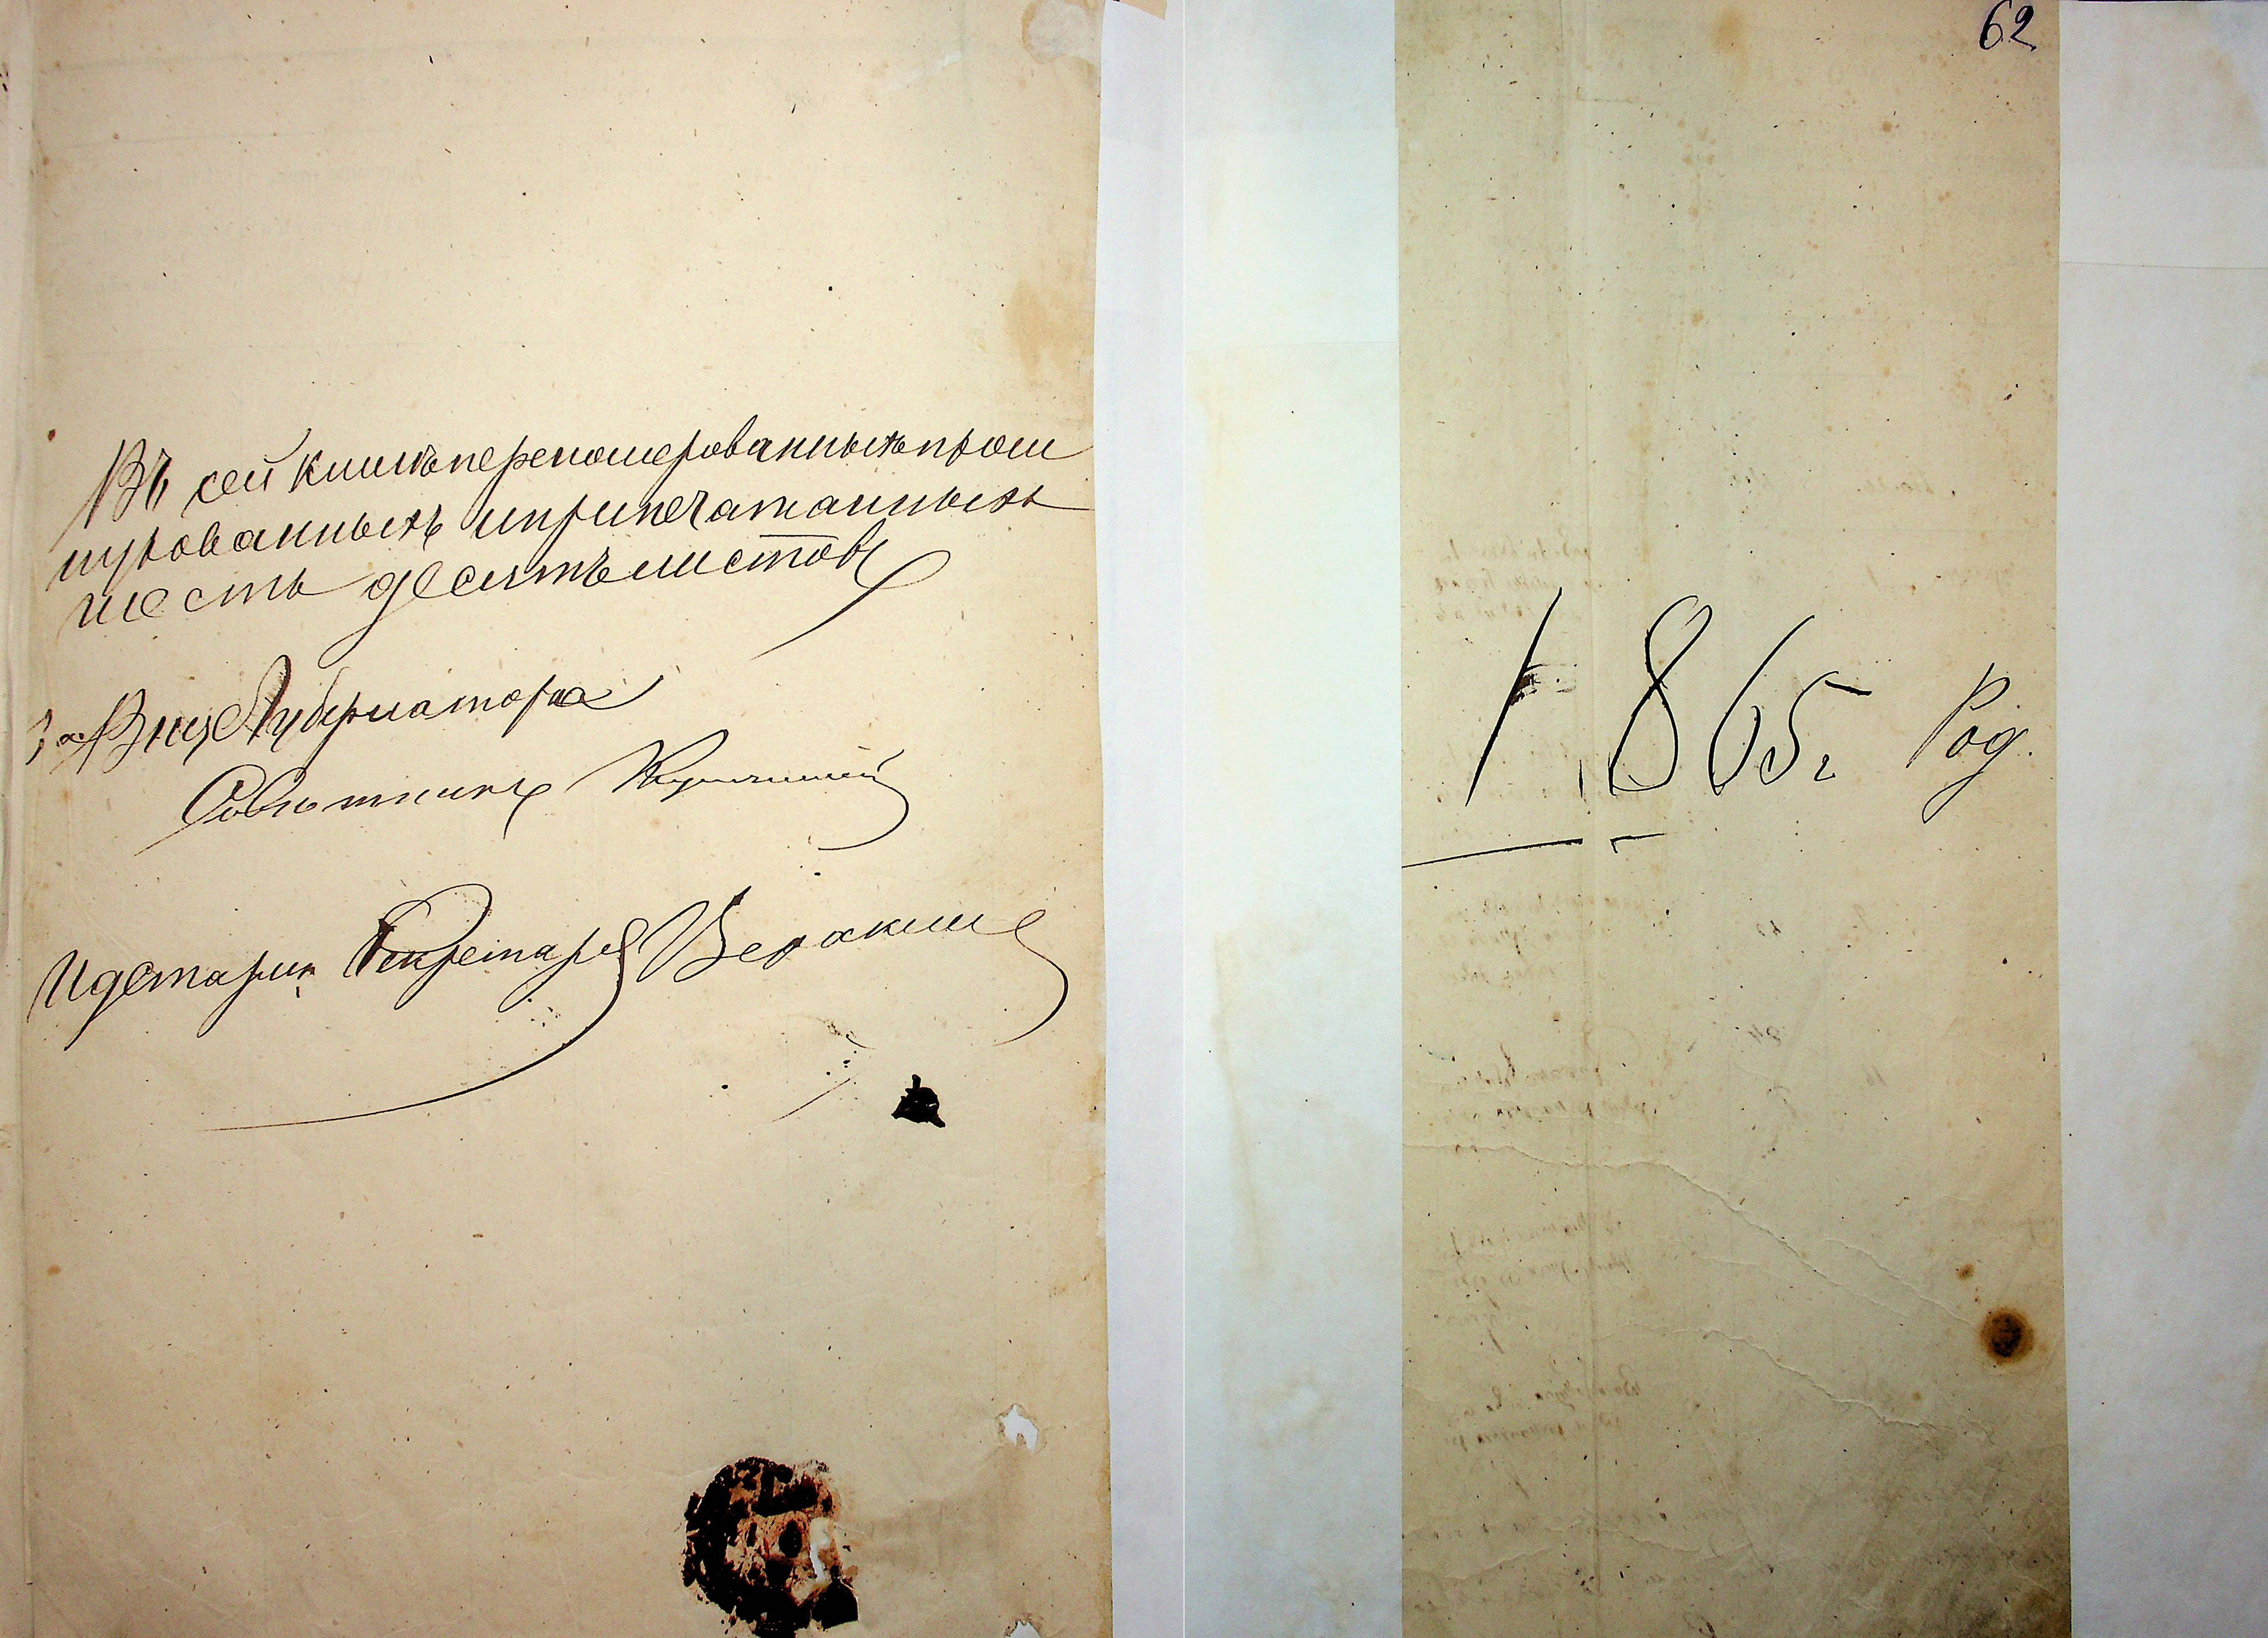 Въ сей книгѣ переномерованныхъ прош
нурованныхъ и припечатанныхъ
шесть десятъ листовъ
За Вице Губернатора
Совѣтникъ
Секретаря
62
1865 г Род.